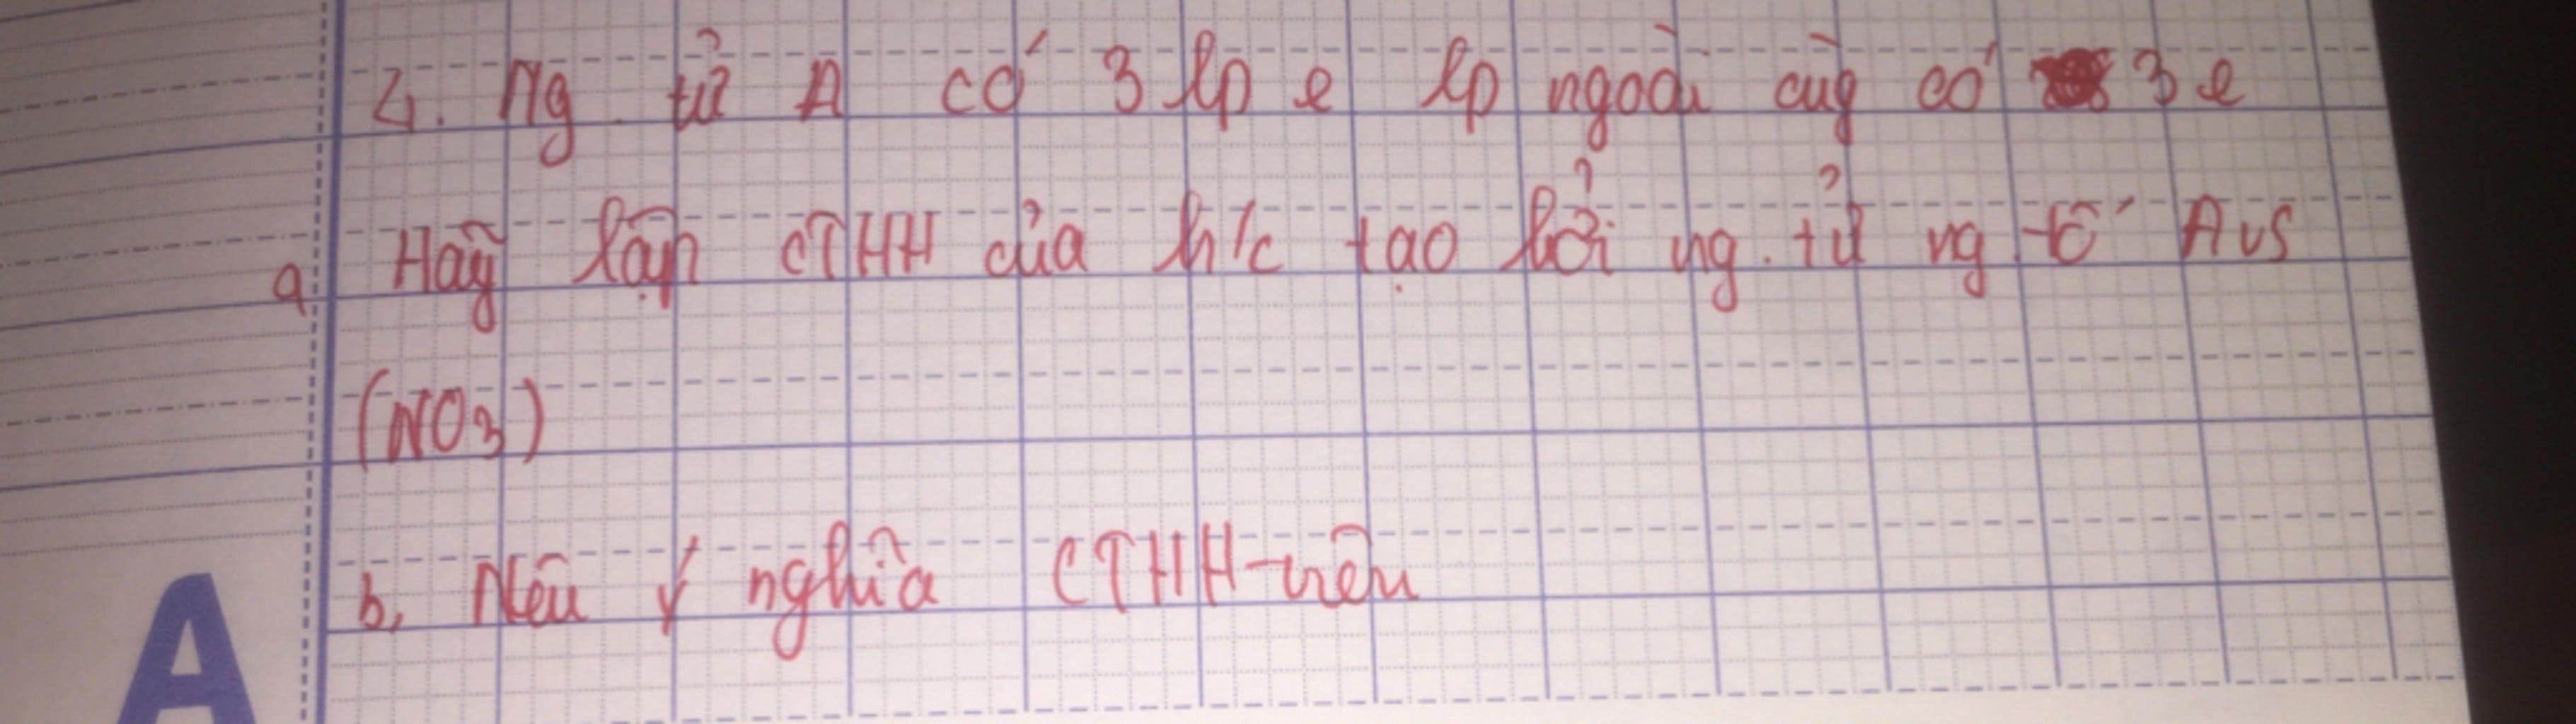 4. Ng. tử A có 3 lp e lp ngoài cùg có 3 e
a Hãy lập CTHH của h/c tạo bởi ng. tử ng tố A vs
(NO3)
b, Nêu ý nghĩa CTHH trên
A